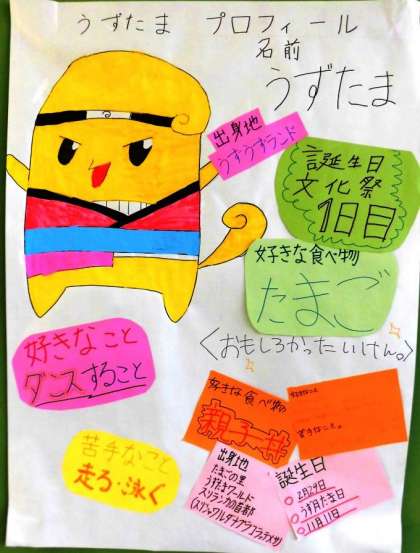 うずたま プロフィール
名前
うずたま
出身地
うずうずランド
誕生日
文化祭
1日目
好きな食べ物
たまご
好きなこと
ダンスすること
<おもしろかったいけん。
苦手なこと
走る・泳ぐ
好きな食べ物
親子丼
出身地
たまごの里
うずまきワールド
スリランカの首都
誕生日
2月29日
うず月たま日
11月11日